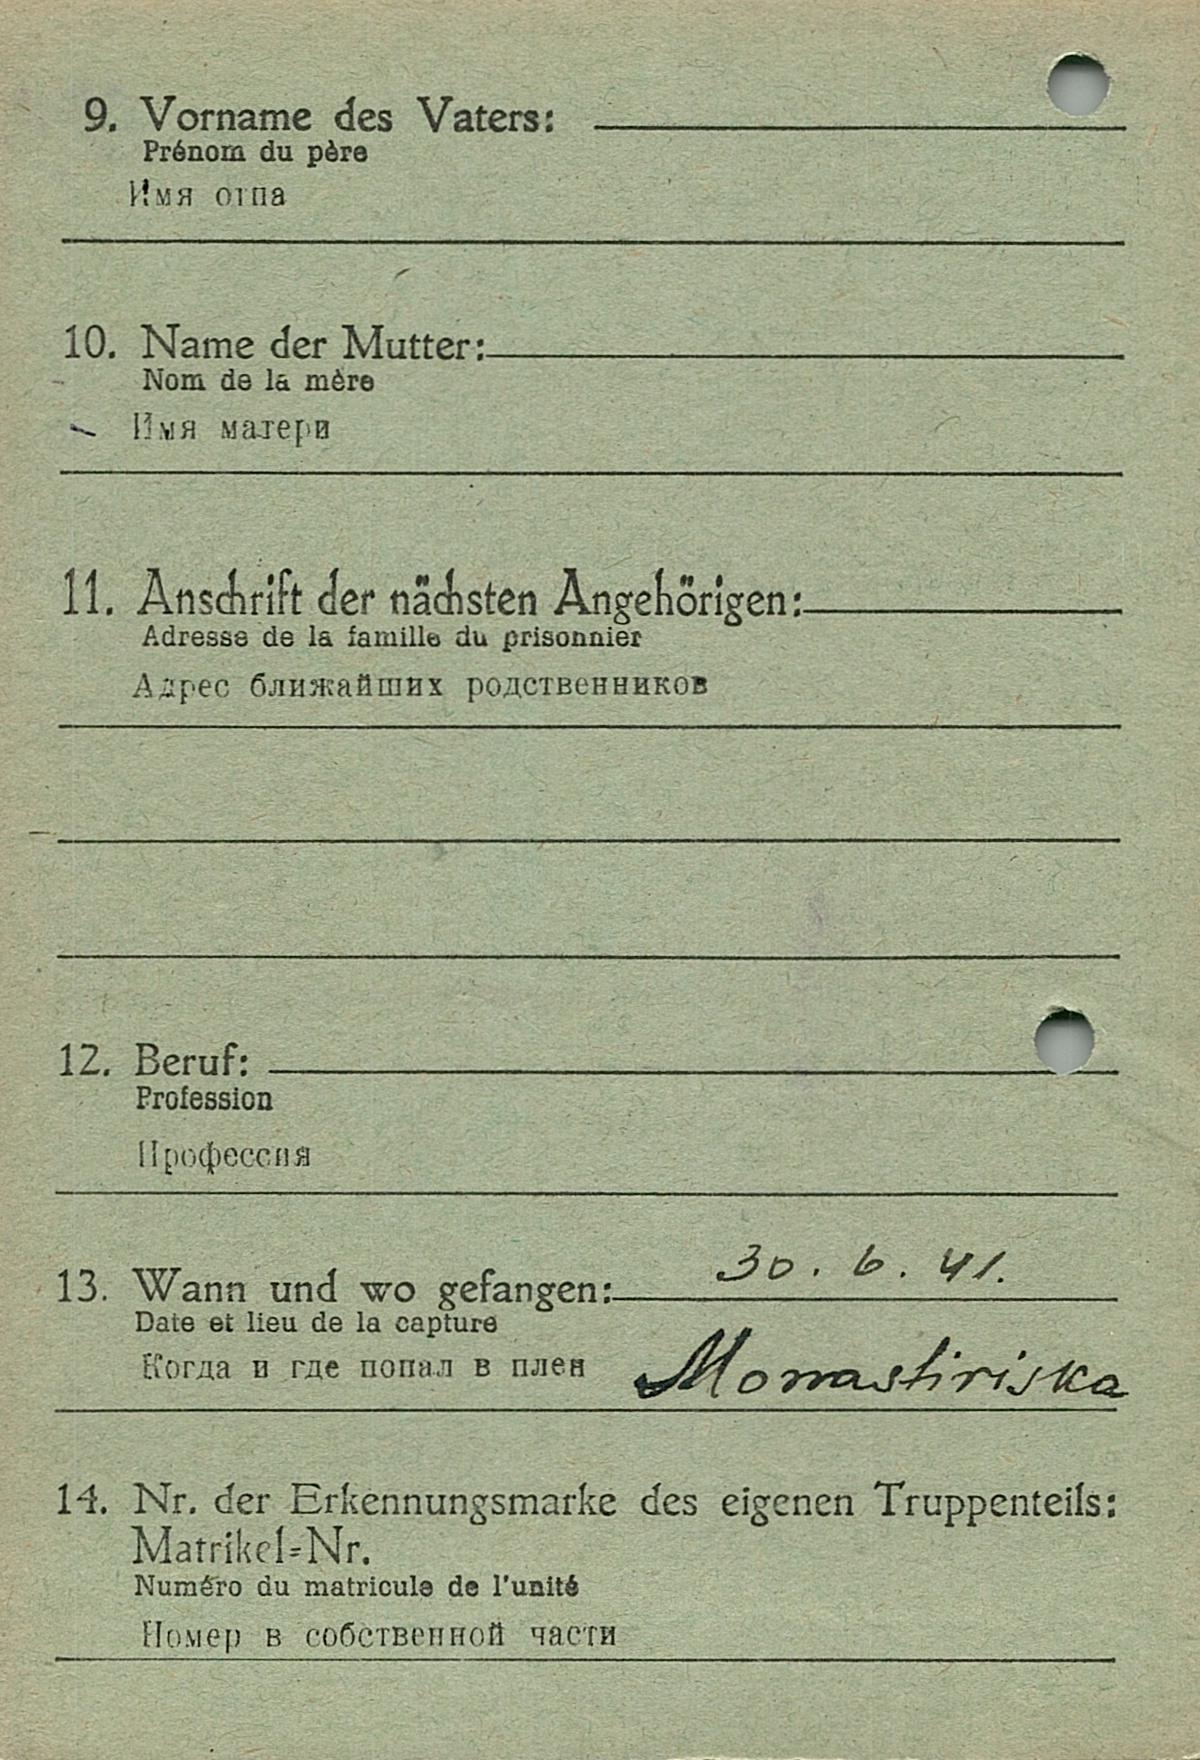 9. Vorname des Vaters:
Prénom du père
Имя отца
10. Name der Mutter:
Nom de la mère
Имя матери
11. Anschrift der nächsten Angehörigen:
Adresse de la famille du prisonnier
Адрес ближайших родственников
12. Beruf:
Profession
Профессия
13. Wann und wo gefangen: 30. 6. 41.
Date et lieu de la capture
Когда и где попал в плен Monastiriska
14. Nr. der Erkennungsmarke des eigenen Truppenteils:
Matrikel=Nr.
Numéro du matricule de l'unité
Номер в собственной части